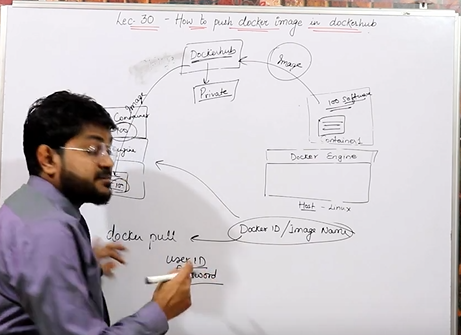 Lec. 30 - How to push docker image in dockerhub
Dockerhub
Image
Private
Image
Container
100 software
Container1
Docker Engine
Host - Linux
Docker ID / Image Name
docker pull
user ID